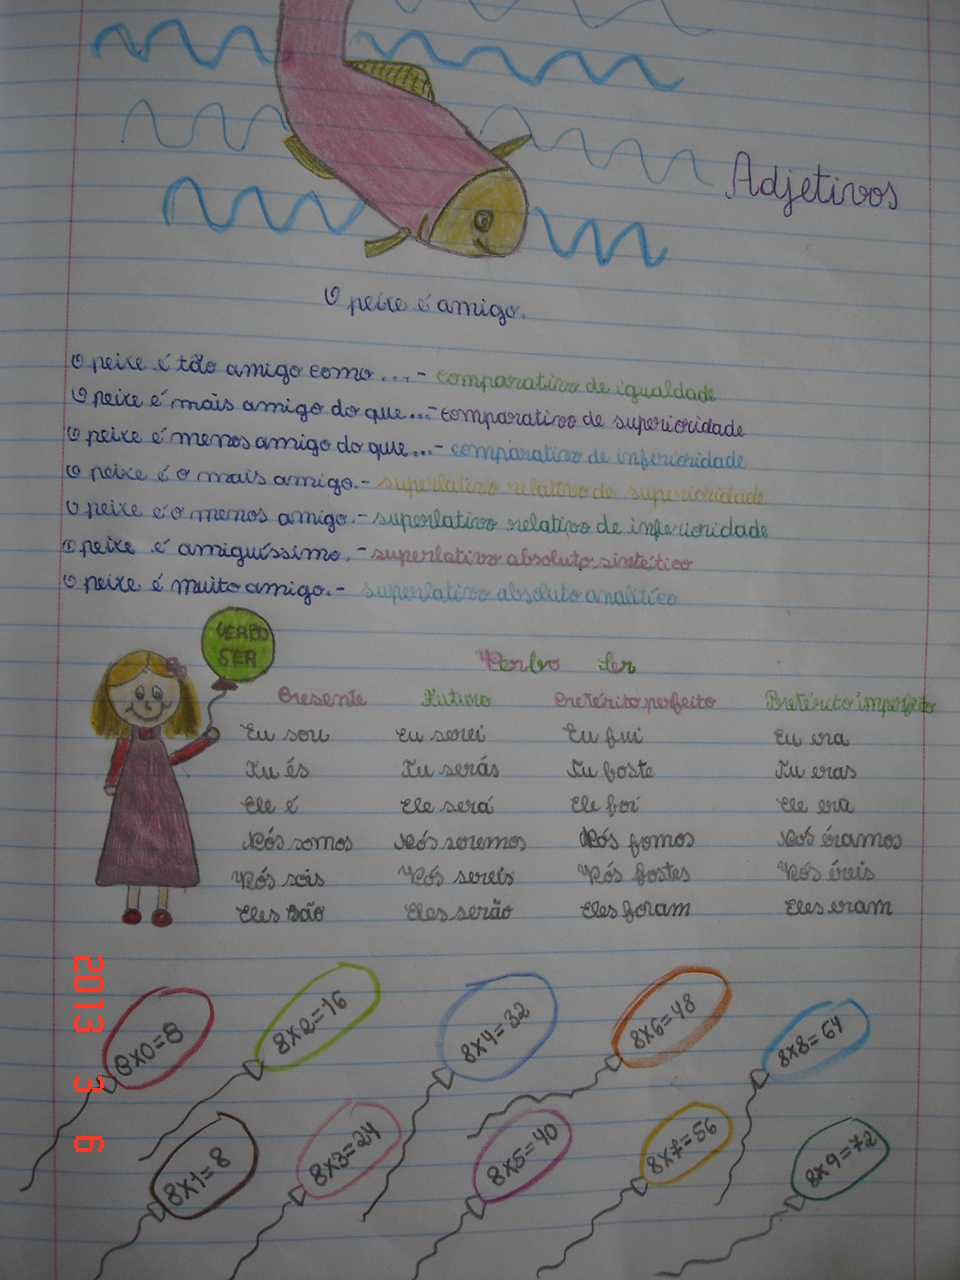 Adjetivos
O peixe é amigo.
O peixe é tão amigo como...- comparativo de igualdade
O peixe é mais amigo do que...- comparativo de superioridade
O peixe é menos amigo do que...- comparativo de inferioridade
O peixe é o mais amigo.- superlativo relativo de superioridade
O peixe é o menos amigo.- superlativo relativo de inferioridade
O peixe é amiguíssimo.- superlativo absoluto sintético
O peixe é muito amigo.- superlativo absoluto analítico
VERBO
SER
Verbo Ser
Presente Futuro Pretérito perfeito Pretérito imperfeito
Eu sou Eu serei Eu fui Eu era
Tu és Tu serás Tu foste Tu eras
Ele é Ele será Ele foi Ele era
Nós somos Nós seremos Nós fomos Nós éramos
Vós sois Vós sereis Vós fostes Vós éreis
Eles são Eles serão Eles foram Eles eram
8x0=8 8x2=16 8x4=32 8x6=48 8x8=64
8x1=8 8x3=24 8x5=40 8x7=56 8x9=72
2013 3 6